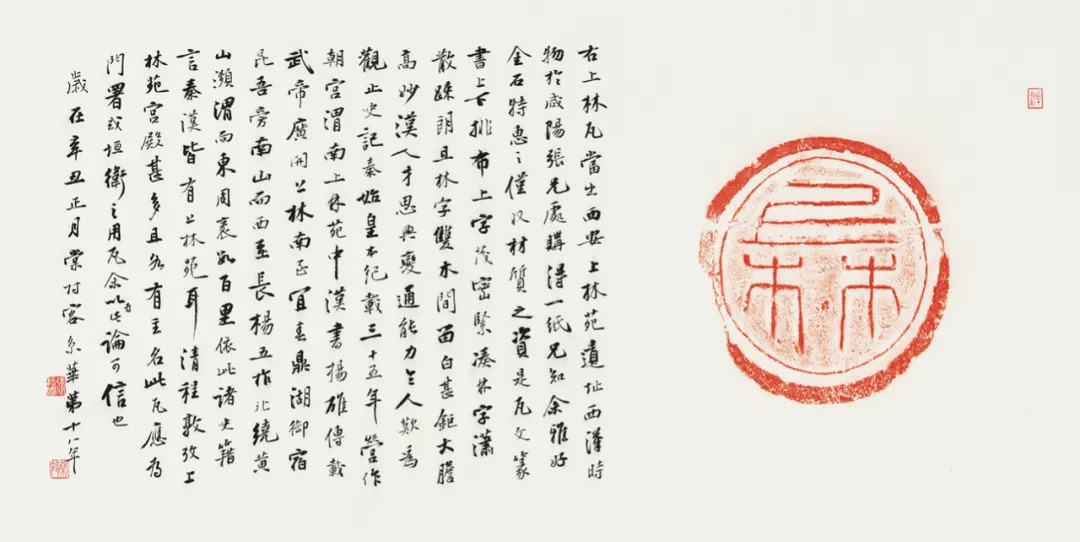 上林
右上林瓦當出西安上林苑遺址西漢時
物於咸陽張兄處購得一紙兄知余雅好
金石特惠之僅收材質之資是瓦文篆
書上下排布上字茂密緊凑林字瀟
散疎朗且林字雙木間留白甚鉅大膽
高妙漢人才思與變通能力令人歎為
觀止史記秦始皇本紀載三十五年營作
朝宮渭南上林苑中漢書揚雄傳載
武帝廣開上林南至宜春鼎湖御宿
昆吾旁南山而西至長楊五柞北繞黃
山瀕渭而東周袤數百里依此諸史籍
言秦漢皆有上林苑耳清程敦攷上
林苑宮殿甚多且各有主名此瓦應為
門署或垣衛之用瓦余以為此論可信也
歲在辛丑正月棠村客京華第十八年